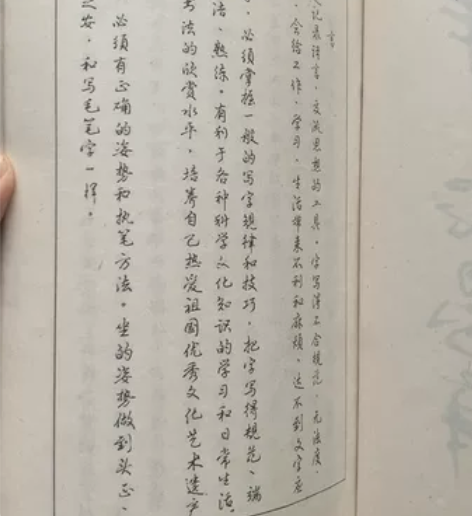 言
记录语言，交流思想的工具。字写得不合规范，无法度，
会给工作、学习、生活带来不利和麻烦。达不到文字应
必须掌握一般的写字规律和技巧，把字写得规范、端
熟练。有利于各种科学文化知识的学习和日常生活。
书法的欣赏水平，培养自己热爱祖国优秀文化艺术遗产
必须有正确的姿势和执笔方法。坐的姿势做到头正、
之安，和写毛笔字一样。